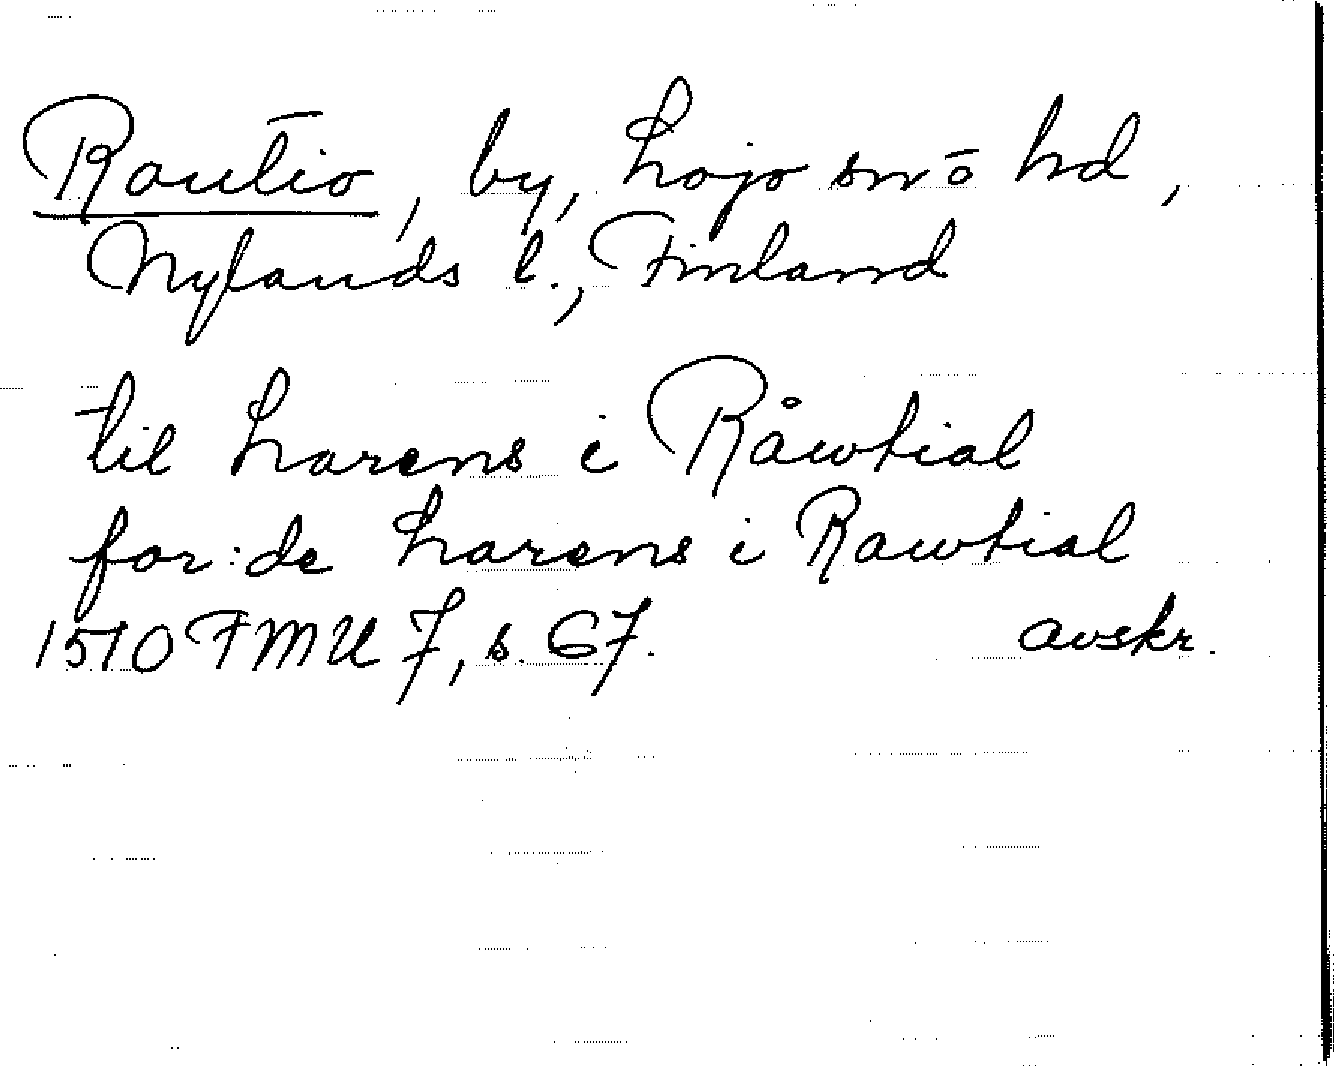 Rautio, by, Lojo sn o hd,
Nylands l., Finland
til Larens i Råwtial
for:de Larens i Rawtial
1510 FMU 7, s. 67. avskr.